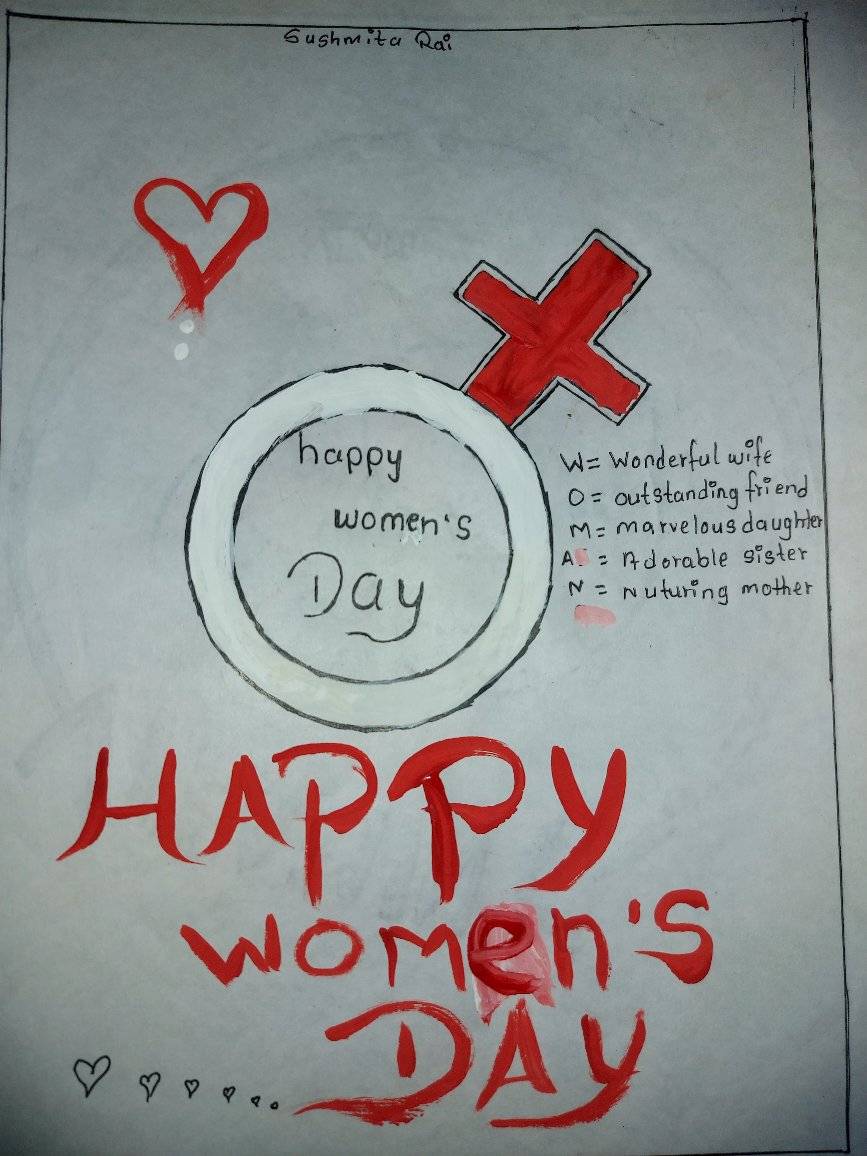 Sushmita Rai
happy
women's
Day
W = Wonderful wife
O = outstanding friend
M = marvelous daughter
A = Adorable sister
N = Nuturing mother
HAPPY
women's
DAY